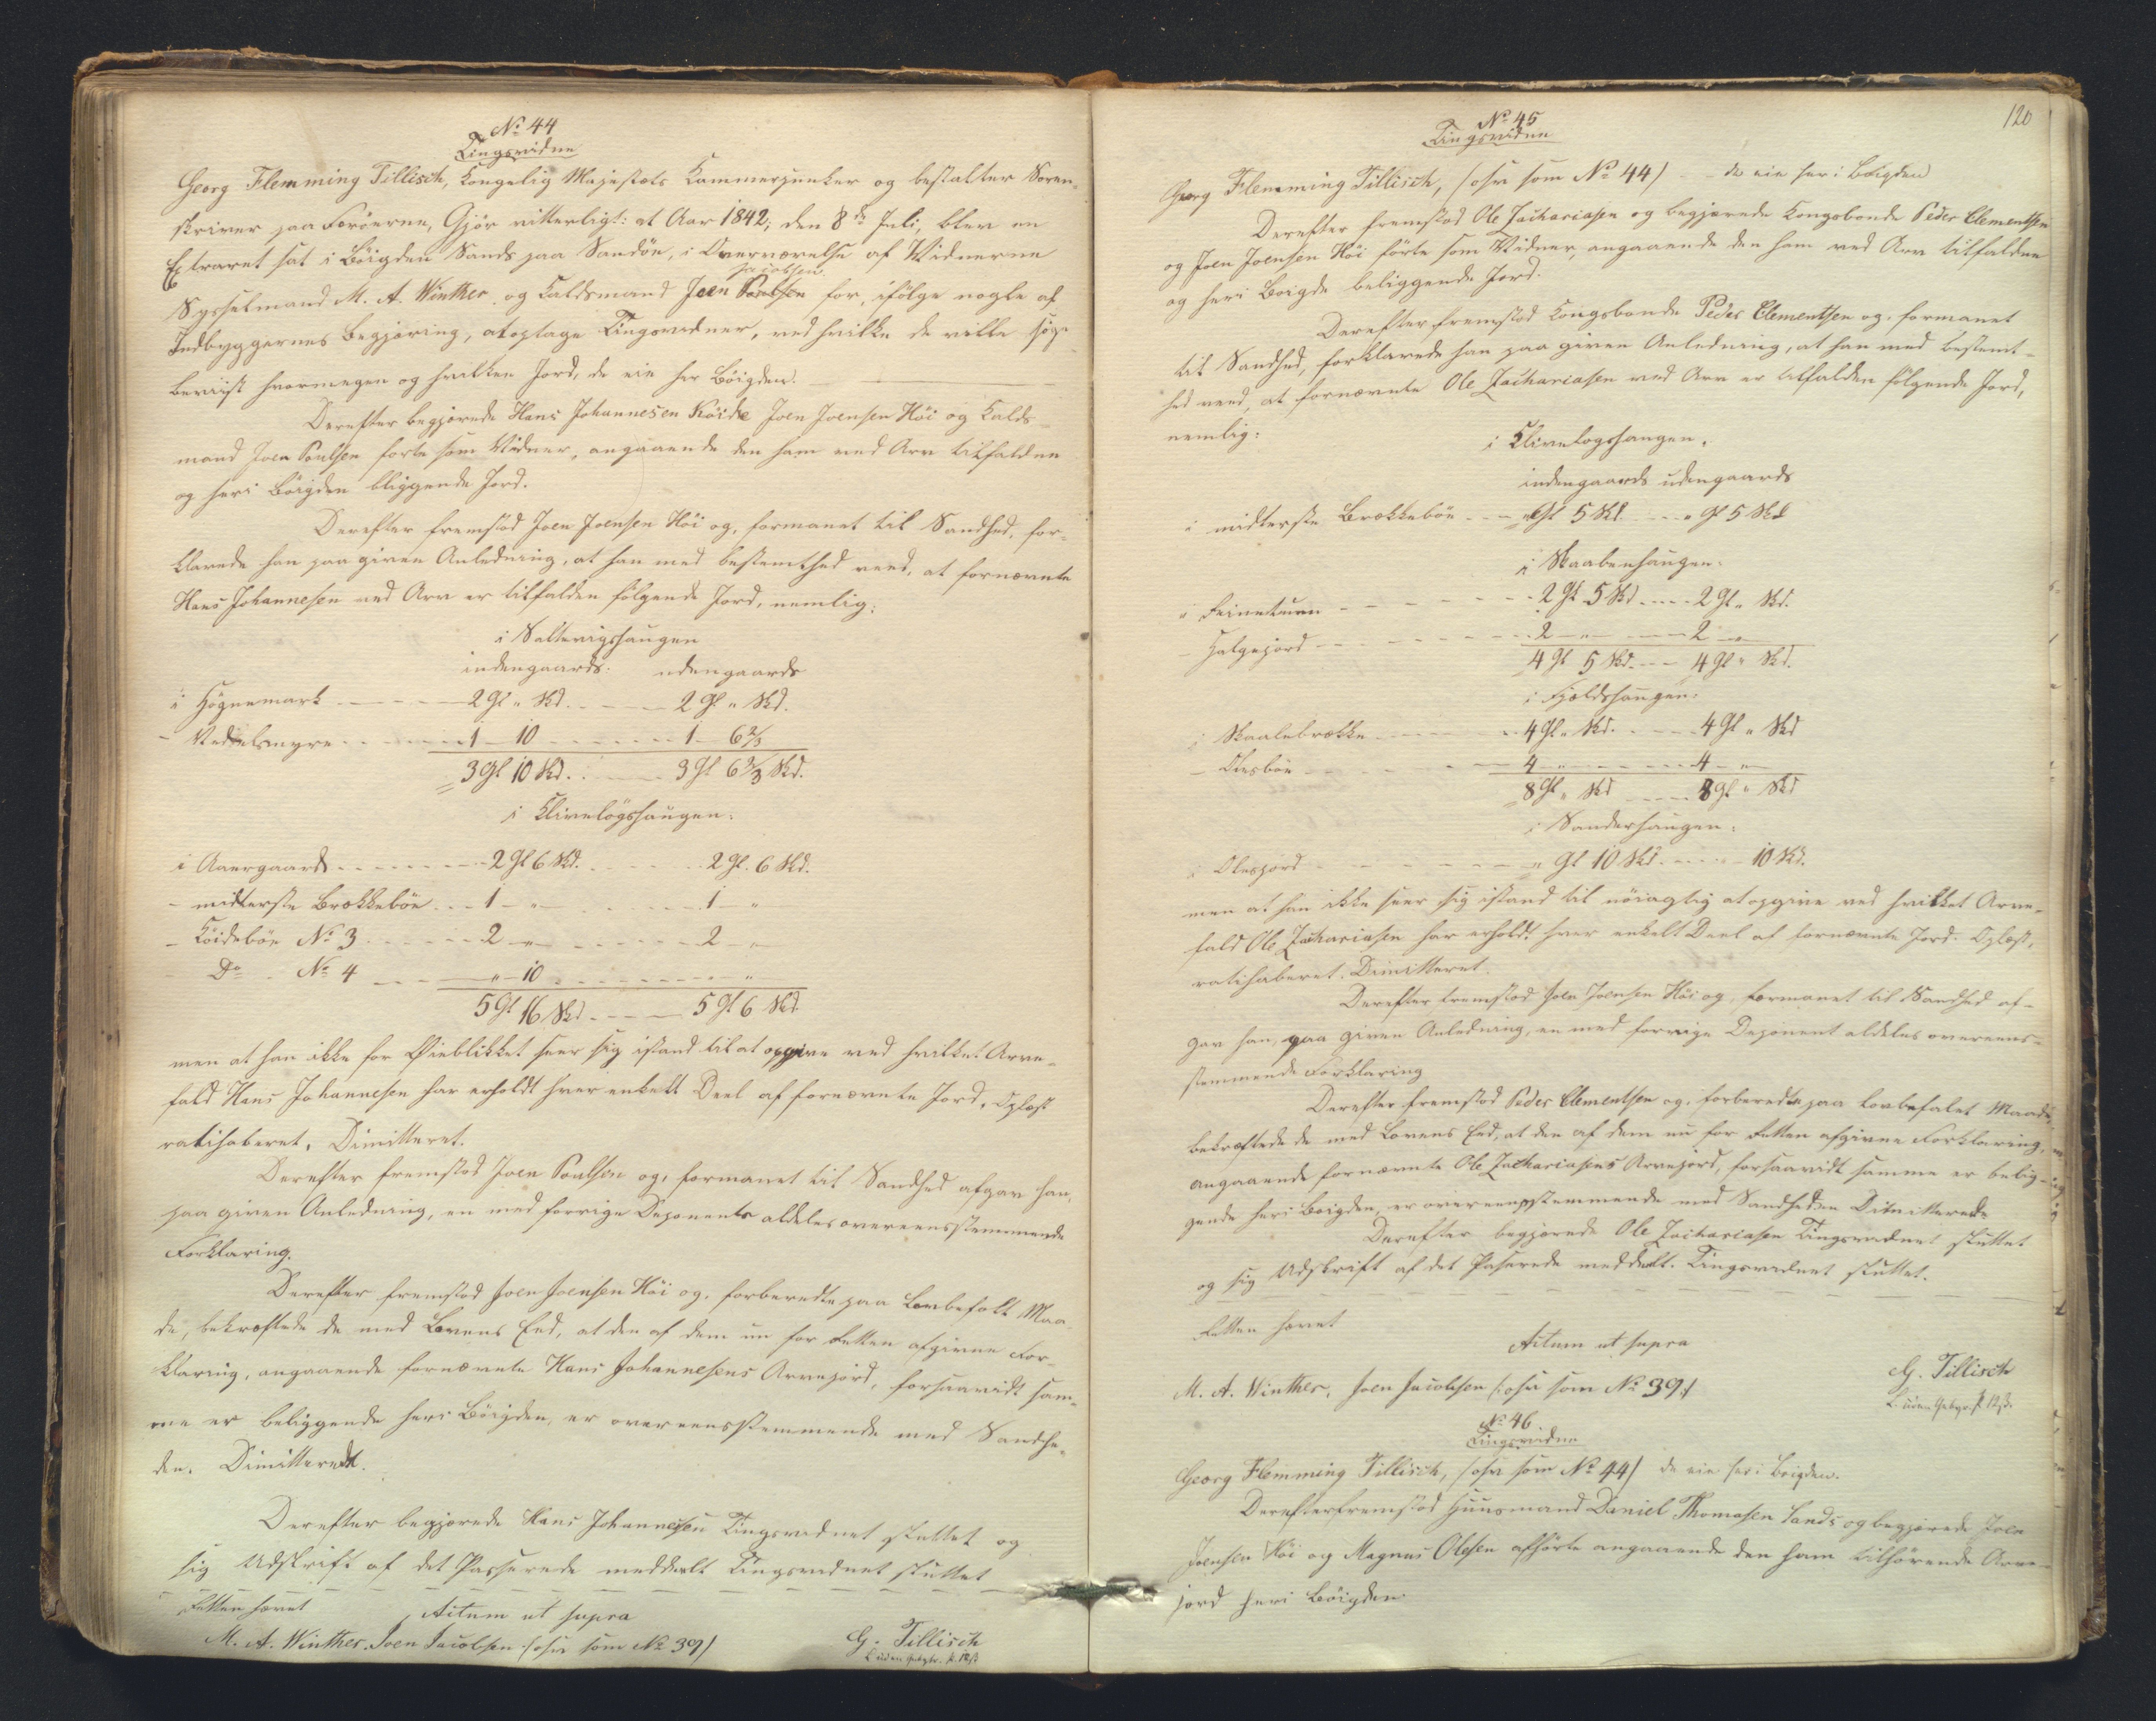 No 44
Tingsvidne
Georg Flemming Tillisch, Kongelig Majestæts Kammerjunker og bestalter Soren-
skriver paa Færöerne, Gjör vitterligt: at Aar 1842, den 8de Juli, blev en
Extraret sat i Böigden Sands paa Sandöe, i Overværelse af Vidnerne
Sysselmand M. A. Winther og Kaldsmand Joen Poulsen Jacobsen for, ifölge nogle af
Indbyggernes Begjæring, at optage Tingsvidner, ved hvilke de ville söge
beviist hvormegen og hvilken Jord, de eie her Böigden.
Derefter begjærede Hans Johannesen Köide Joen Joensen Höi og Kalds-
mand Joen Poulsen förte som Vidner, angaaende den ham ved Arv tilfaldne
og her i Böigden bliggende Jord.
Derefter fremstod Joen Joensen Höi og, formanet til Sandhed, for-
klarede han paa given Anledning, at han med bestemthed veed, at fornævnte
Hans Johannesen ved Arv er tilfalden fölgende Jord, nemlig:
i Saltevigshaugen
indengaards: udengaards
i Högnemark 2 Gl " Skd. 2 Gl " Skd.
- Vedelsmyre 1 - 10 1 - 6 2/3
3 Gl 10 Skd. 3 Gl 6 2/3 Skd.
i Klivelögshaugen:
i Aaergaard 2 Gl 6 Skd. 2 Gl. 6 Skd.
- midterste Brekkeböe 1 - " 1 - "
- Köideböe No 3 2 - " 2 - "
Do - No 4 " - 10 "
5 Gl 16 Skd 5 Gl 6 Skd.
men at han ikke for Øieblikket seer sig istand til at opgive ved hvilket Arve-
fald Hans Johannesen har erholdt hver enkelt Deel af fornævnte Jord, Oplæst
ratihaberet. Dimitteret.
Derefter fremstod Joen Poulsen og, formanet til Sandhed afgav han,
paa given Anledning, en med forrige Deponents aldeles overeensstemmende
Forklaring.
Derefter fremstod Joen Joensen Höi og, forberedte paa Lovbefalt Maa-
de, bekræftede de med Lovens Eed, at den af dem nu for Retten afgivne For-
klaring, angaaende fornævnte Hans Johannesens Arvejord, forsaavidt sam-
me er beliggende her i Böigden, er overeensstemmende med Sandhe-
den. Dimitteredt.
Derefter begjærede Hans Johannesen Tingsvidnet sluttet og
sig Udskrift af det Passerede meddeelt Tingsvidnet sluttet
Retten hævet
Actum ut supra
M. A. Winther. Joen Jacobsen (ofr som No 39)
G. Tillisch
120
No 45
Tingsvidne
Georg Flemming Tillisch, (ofr som No 44) - de eie her i Böigden
Derefter fremstod Ole Zachariasen og begjærede Kongsbonde Peder Clementsen
og Joen Joensen Höi förte som Vidner, angaaende den ham ved Arv tilfaldne
og her i Böigde beliggende Jord.
Derefter fremstod Kongsbonde Peder Clementsen og, formanet
til Sandhed, forklarede han paa given Anledning, at han med bestemt-
hed veed, at fornævnte Ole Zachariasen ved Arv er tilfalden fölgende Jord,
nemlig:
i Klivelogshaugen.
indengaards udengaards
i midterste Brekkeböe " Gl 5 Skd " Gl 5 Skd
i Skaabenhaugen:
2 Gl 5 Skd 2 Gl " Skd.
- Halgejord 2 - " 2 - "
4 Gl 5 Skd. 4 Gl " Skd.
i Fjeldshaugen:
i Skaalebrekke 4 Gl. " Skd. 4 Gl " Skd
- Olesböe 4 - " 4 - "
8 Gl " Skd 8 Gl " Skd
i Sandershaugen:
i Olesjord " Gl 10 Skd. 10 Skd.
men at han ikke seer sig istand til nöiagtig at opgive ved hvilket Arve-
fald Ole Zachariasen har erholdt hver enkelt Deel af fornævnte Jord. Oplæst,
ratihaberet. Dimitteret.
Derefter fremstod Joen Joensen Höi og, formanet til Sandhed af-
gav han, paa given Anledning, en med forrige Deponent aldeles overeens-
stemmende Forklaring
Derefter fremstod Peder Clementsen og, forberedte paa Lovbefalet Maade,
bekræftede de med Lovens Eed, at den af dem nu for Retten afgivne Forklaring,
angaaende fornævnte Ole Zachariasens Arvejord, forsaavidt samme er belig-
gende her i Böigden, er overeensstemmende med Sandheden Dimitterede
Derefter begjærede Ole Zachariasen Tingsvidnet sluttet
og sig Udskrift af det Passerede meddeelt. Tingsvidnet sluttet.
Retten hævet
Actum ut supra
M. A. Winther. Joen Jacobsen (ofr som No 39)
G. Tillisch
No 46
Tingsvidne
Georg Flemming Tillisch, (ofr som No 44) de eie her i Böigden.
Derefter fremstod Huusmand Daniel Thomasen Sands og begjærede Joen
Joensen Höi og Magnus Olesen afhörte angaaende den ham tilhörende Arve-
jord her i Böigden